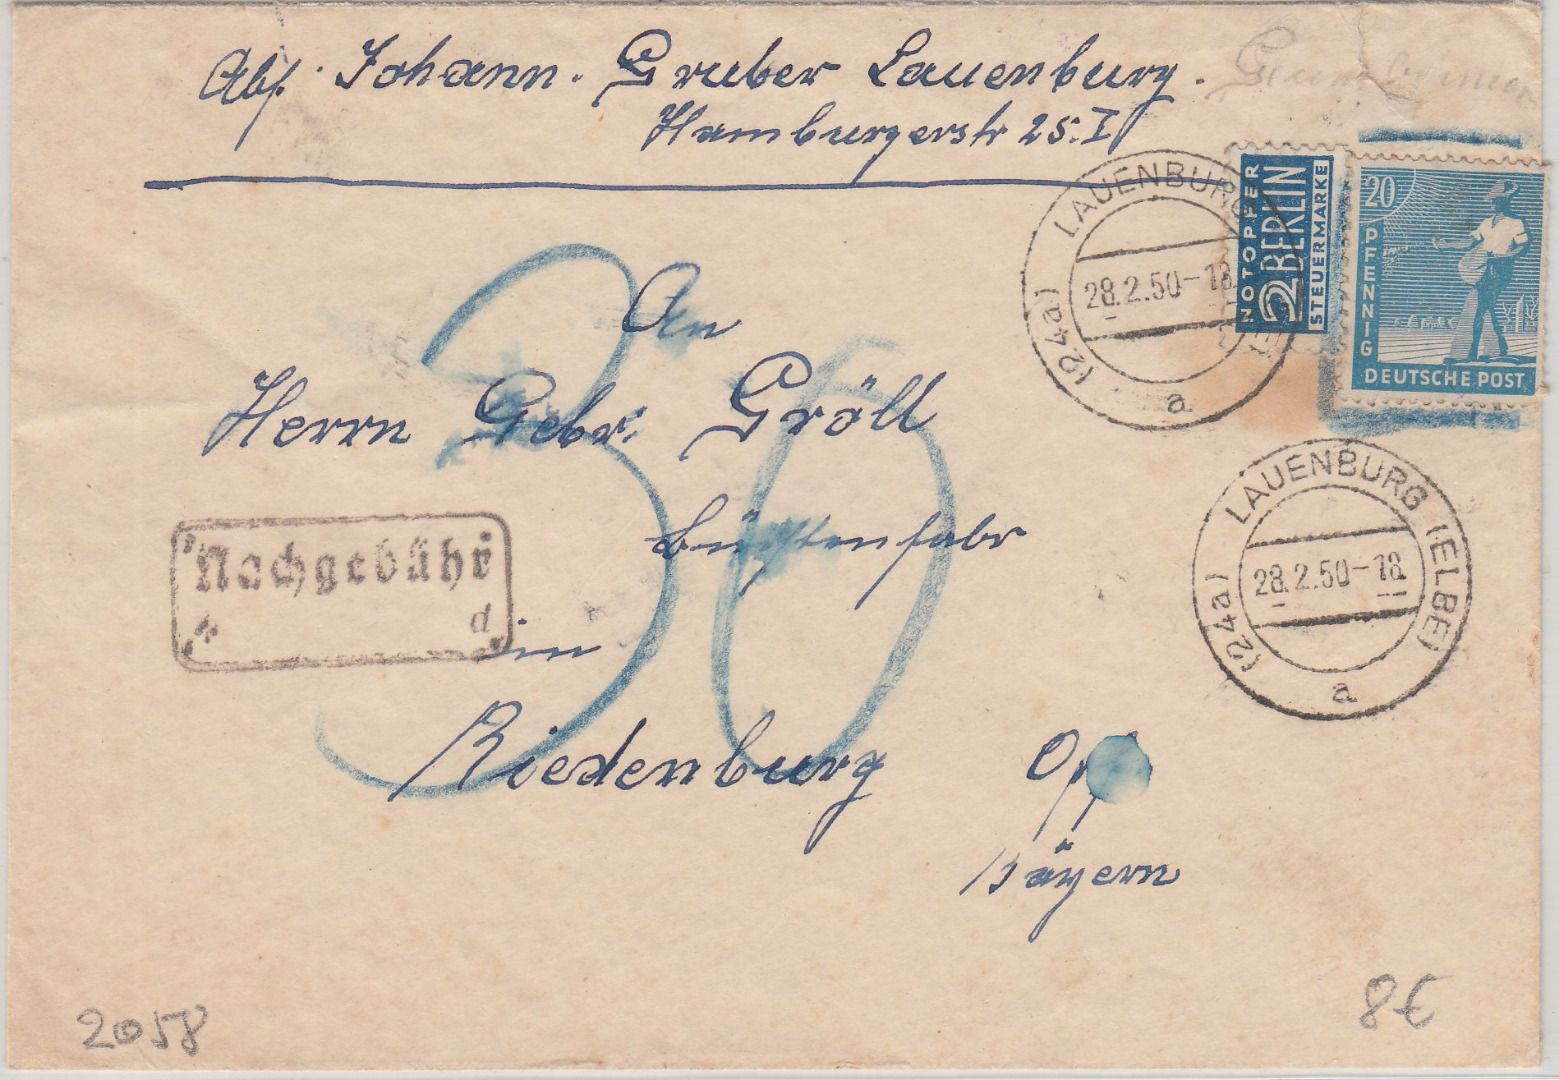 Abs. Johann. Gruber Lauenburg.
Hamburgerstr 25.I
NOTOPFER
2 BERLIN
STEUERMARKE
20
PFENNIG
DEUTSCHE POST
LAUENBURG
28.2.50-18
(24a)
a
An
Herrn Gebr. Gröll
Bürstenfabr
in
Riedenburg Opf
Bayern
30
Nachgebühr
d
LAUENBURG (ELBE)
28.2.50-18
(24a)
a
2058
8€